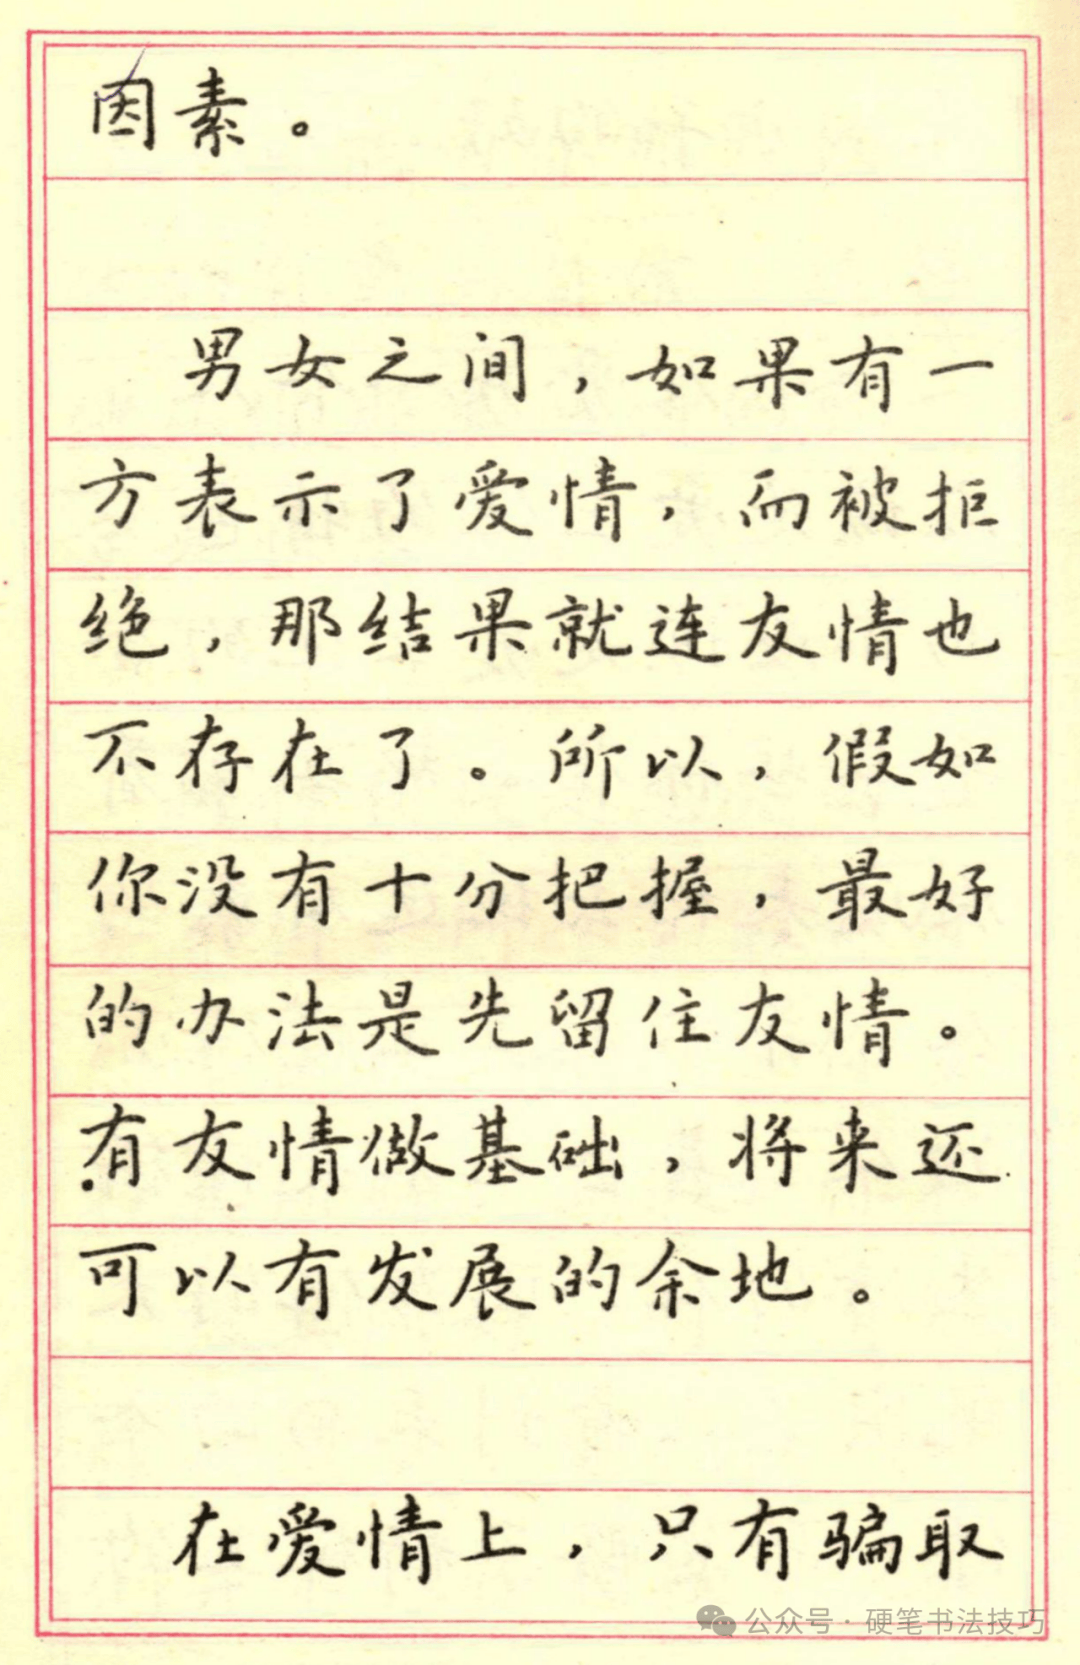 因素。
男女之间，如果有一
方表示了爱情，而被拒
绝，那结果就连友情也
不存在了。所以，假如
你没有十分把握，最好
的办法是先留住友情。
有友情做基础，将来还
可以有发展的余地。
在爱情上，只有骗取
公众号·硬笔书法技巧